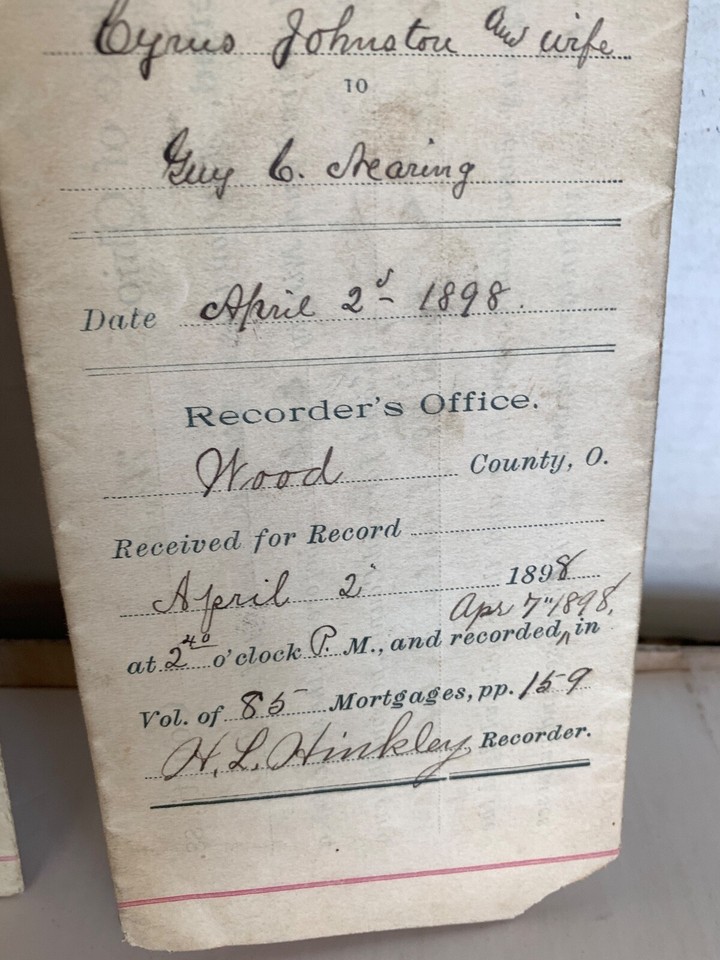 Cyrus Johnston and wife
TO
Guy C. Nearing
Date April 2d 1898.
Recorder's Office.
Wood County, O.
Received for Record
April 2 1898
Apr 7" 1898,
at 2 40 o'clock P. M., and recorded ^ in
Vol. of 85 Mortgages, pp. 159
H. L. Hinkley, Recorder.